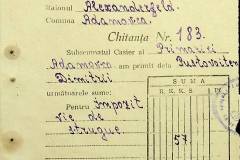 Raionul Alexanderfeld.
Comuna Adamovca.
Chitanța Nr. 183.
Subsemnatul Casier al Primăriei
Adamovca am primit dela Pustoviten
Dimitrii
următoarele sume:
SUMA
R. K. K. S.
Pentru impozit
vie de
strugure
57